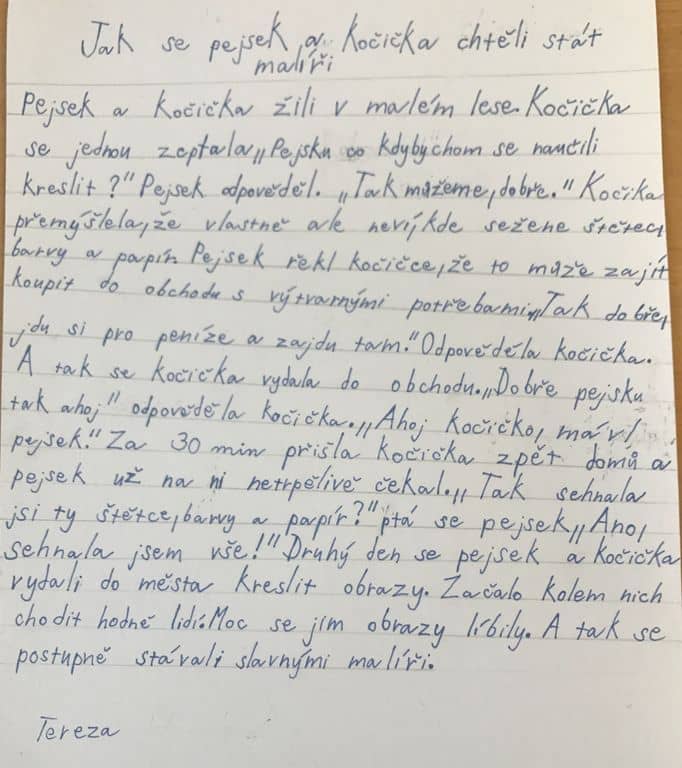 Jak se pejsek a Kočička chtěli stát
malíři
Pejsek a Kočička žili v malém lese. Kočička
se jednou zeptala „Pejsku co kdybychom se naučili
kreslit?" Pejsek odpověděl. „Tak můžeme, dobře." Kočika
přemýšlela, že vlastně ale neví, kde sežene štětec,
barvy a papír. Pejsek řekl kočičce, že to může zajít
koupit do obchodu s výtvarnými potřebami. „Tak dobře,
jdu si pro peníze a zajdu tam." Odpověděla kočička.
A tak se kočička vydala do obchodu. „Dobře pejsku
tak ahoj" odpověděla kočička. „Ahoj kočičko,
pejsek." Za 30 min přišla kočička zpět domů a
pejsek už na ni netrpělivě čekal. „Tak sehnala
jsi ty štětce, barvy a papír?" ptá se pejsek „Ano,
sehnala jsem vše!" Druhý den se pejsek a kočička
vydali do města kreslit obrazy. Začalo kolem nich
chodit hodně lidí. Moc se jím obrazy líbily. A tak se
postupně stávali slavnými malíři.
Tereza